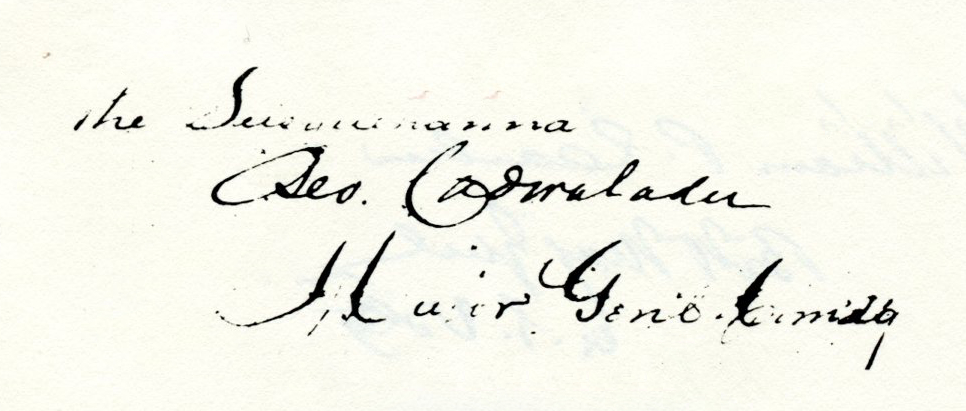 the Susquehanna
Geo. Cadwalader
Major Genl. Comdg